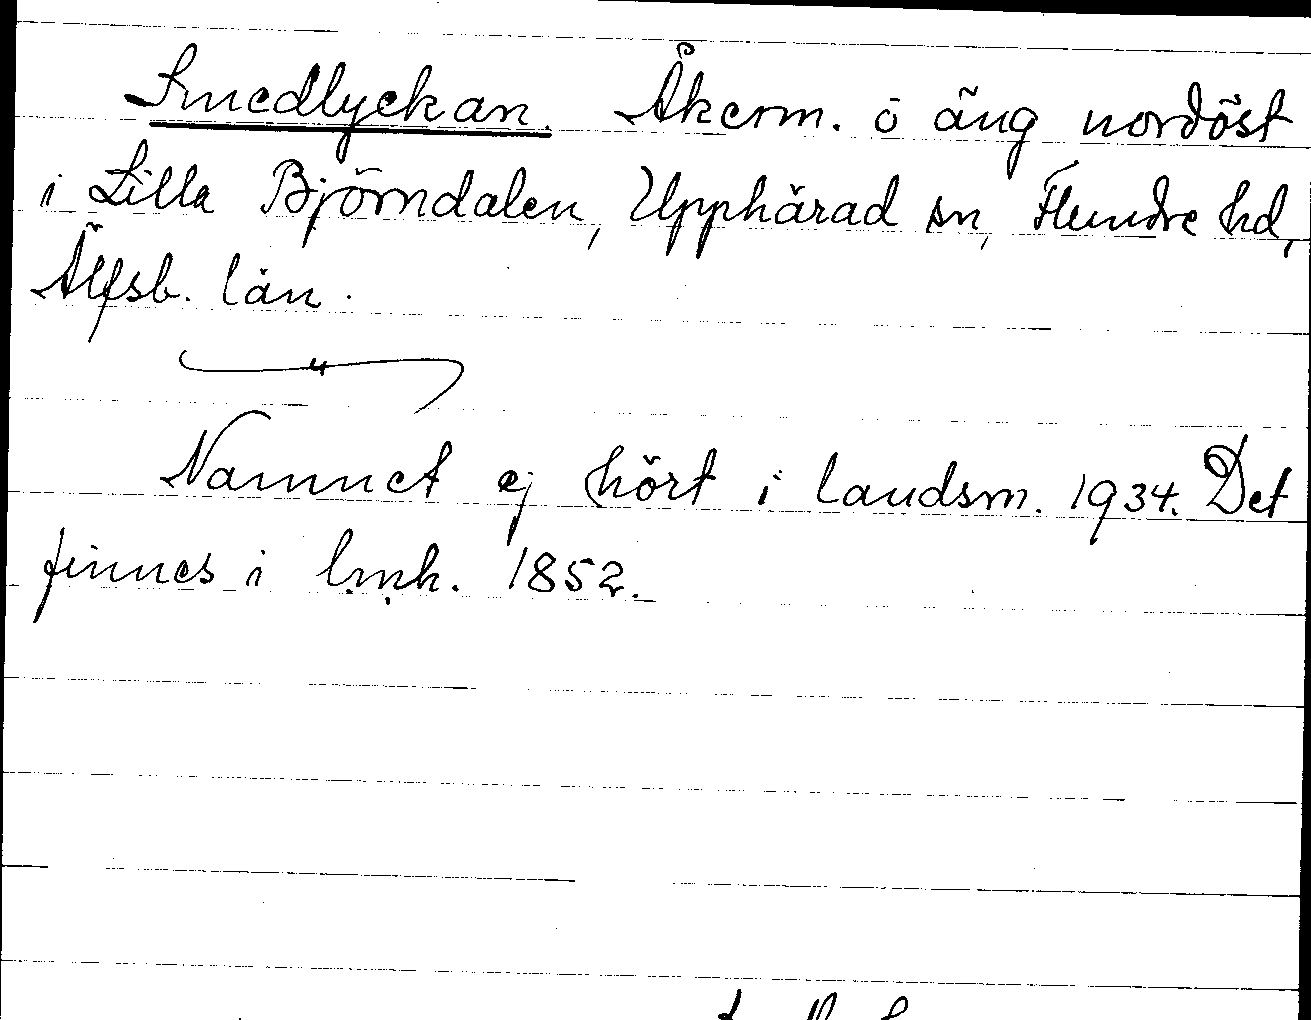 Smedlyckan. Åkerm. o äng nordöst
i Lilla Björndalen, Upphärad sn, Flundre hd,
Älfsb. län.
Namnet ej hört i landsm. 1934. Det
finnes i lmk. 1852.